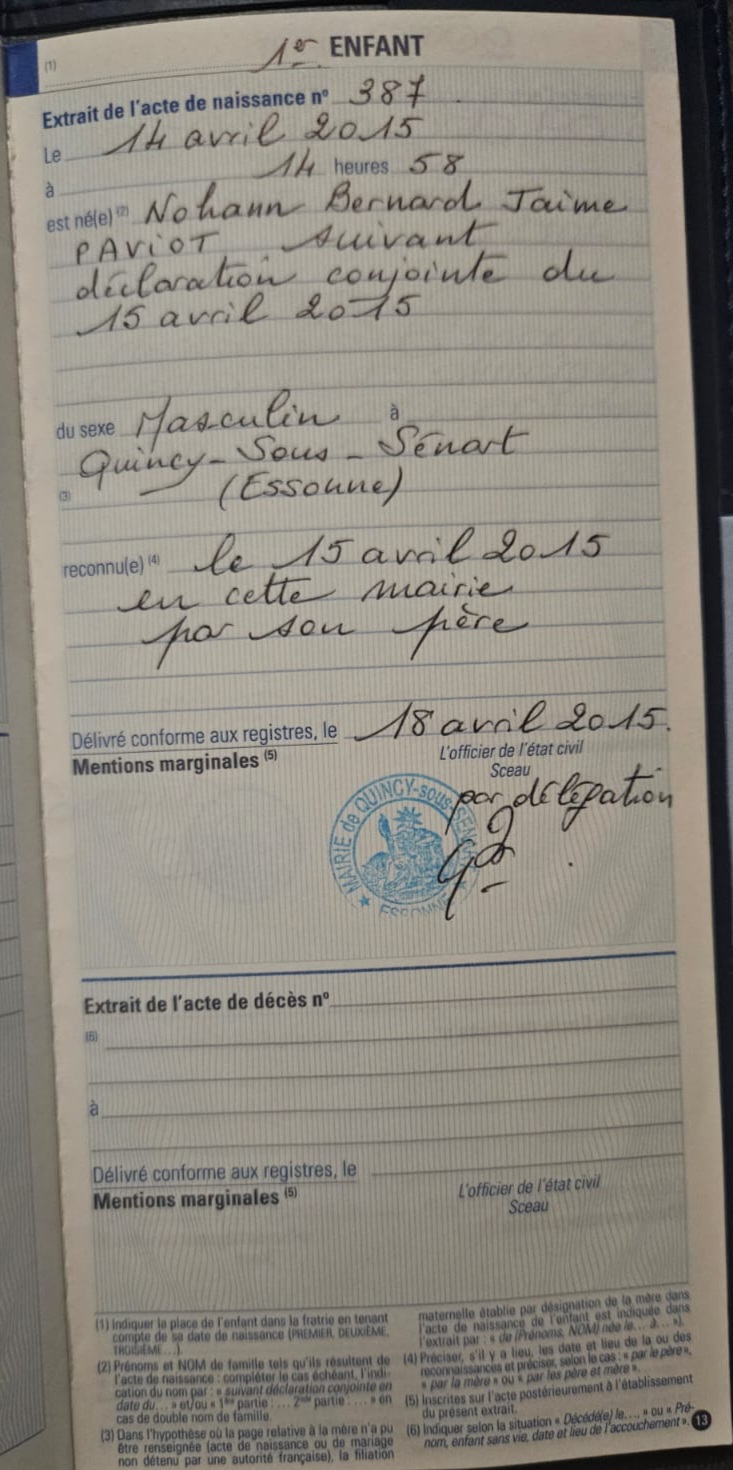 (1) 1er ENFANT
Extrait de l'acte de naissance n° 387
Le 14 avril 2015
à 14 heures 58
est né(e) (2) Nohann Bernard Jaime
PAVIOT suivant
déclaration conjointe du
15 avril 2015
du sexe Masculin à
Quincy-Sous-Sénart
(3) (Essonne)
reconnu(e) (4) le 15 avril 2015
en cette mairie
par son père
Délivré conforme aux registres, le 18 avril 2015.
Mentions marginales (5)
L'officier de l'état civil
Sceau
par délégation
MAIRIE de QUINCY-sous-SENART
ESSONNE
Extrait de l'acte de décès n°
(6)
à
Délivré conforme aux registres, le
Mentions marginales (5)
L'officier de l'état civil
Sceau
(1) Indiquer la place de l'enfant dans la fratrie en tenant
compte de sa date de naissance (PREMIER, DEUXIÈME,
TROISIÈME…).
(2) Prénoms et NOM de famille tels qu'ils résultent de
l'acte de naissance : compléter le cas échéant, l'indi-
cation du nom par : « suivant déclaration conjointe en
date du… » et/ou « 1ère partie : … 2nde partie : … » en
cas de double nom de famille.
(3) Dans l'hypothèse où la page relative à la mère n'a pu
être renseignée (acte de naissance ou de mariage
non détenu par une autorité française), la filiation
maternelle établie par désignation de la mère dans
l'acte de naissance de l'enfant est indiquée dans
l'extrait par : « de (Prénoms, NOM) née le… à… »).
(4) Préciser, s'il y a lieu, les date et lieu de la ou des
reconnaissances et préciser, selon le cas : « par le père »,
« par la mère » ou « par les père et mère ».
(5) Inscrites sur l'acte postérieurement à l'établissement
du présent extrait.
(6) Indiquer selon la situation « Décédé(e) le… » ou « Pré-
nom, enfant sans vie, date et lieu de l'accouchement ».
13